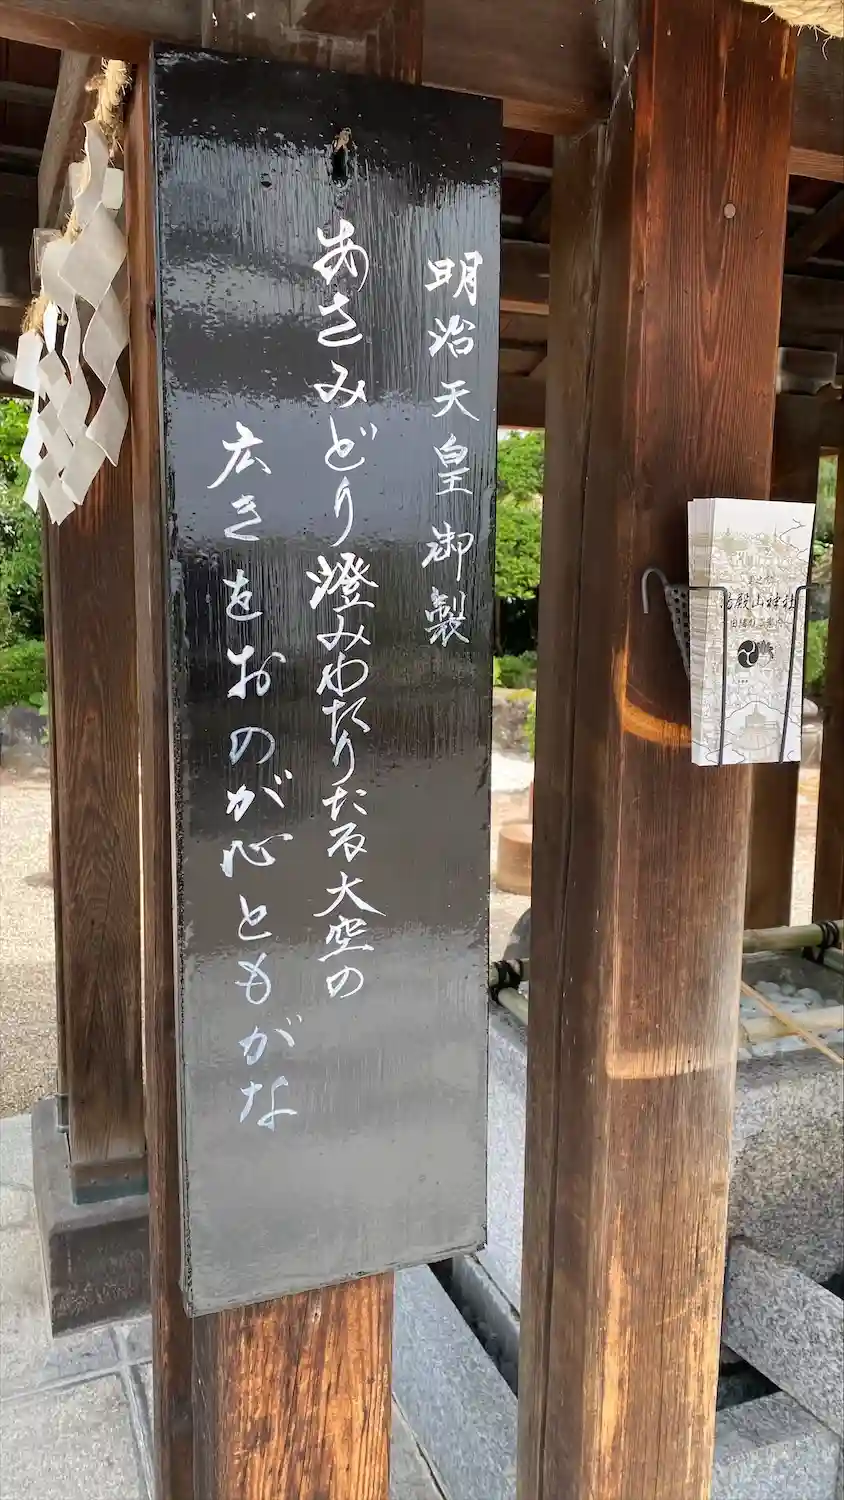 明治天皇御製
あさみどり澄みわたりたる大空の
広きをおのが心ともがな
湯殿山神社